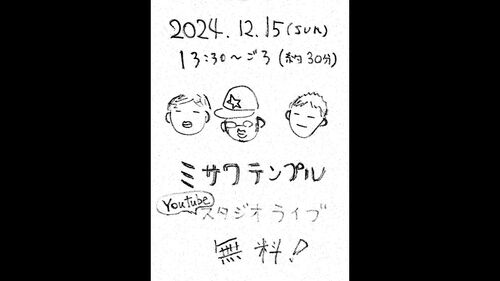 2024.12.15(SUN)
13:30〜ごろ(約30分)
ミサワテンプル
Youtube
スタジオライブ
無料!